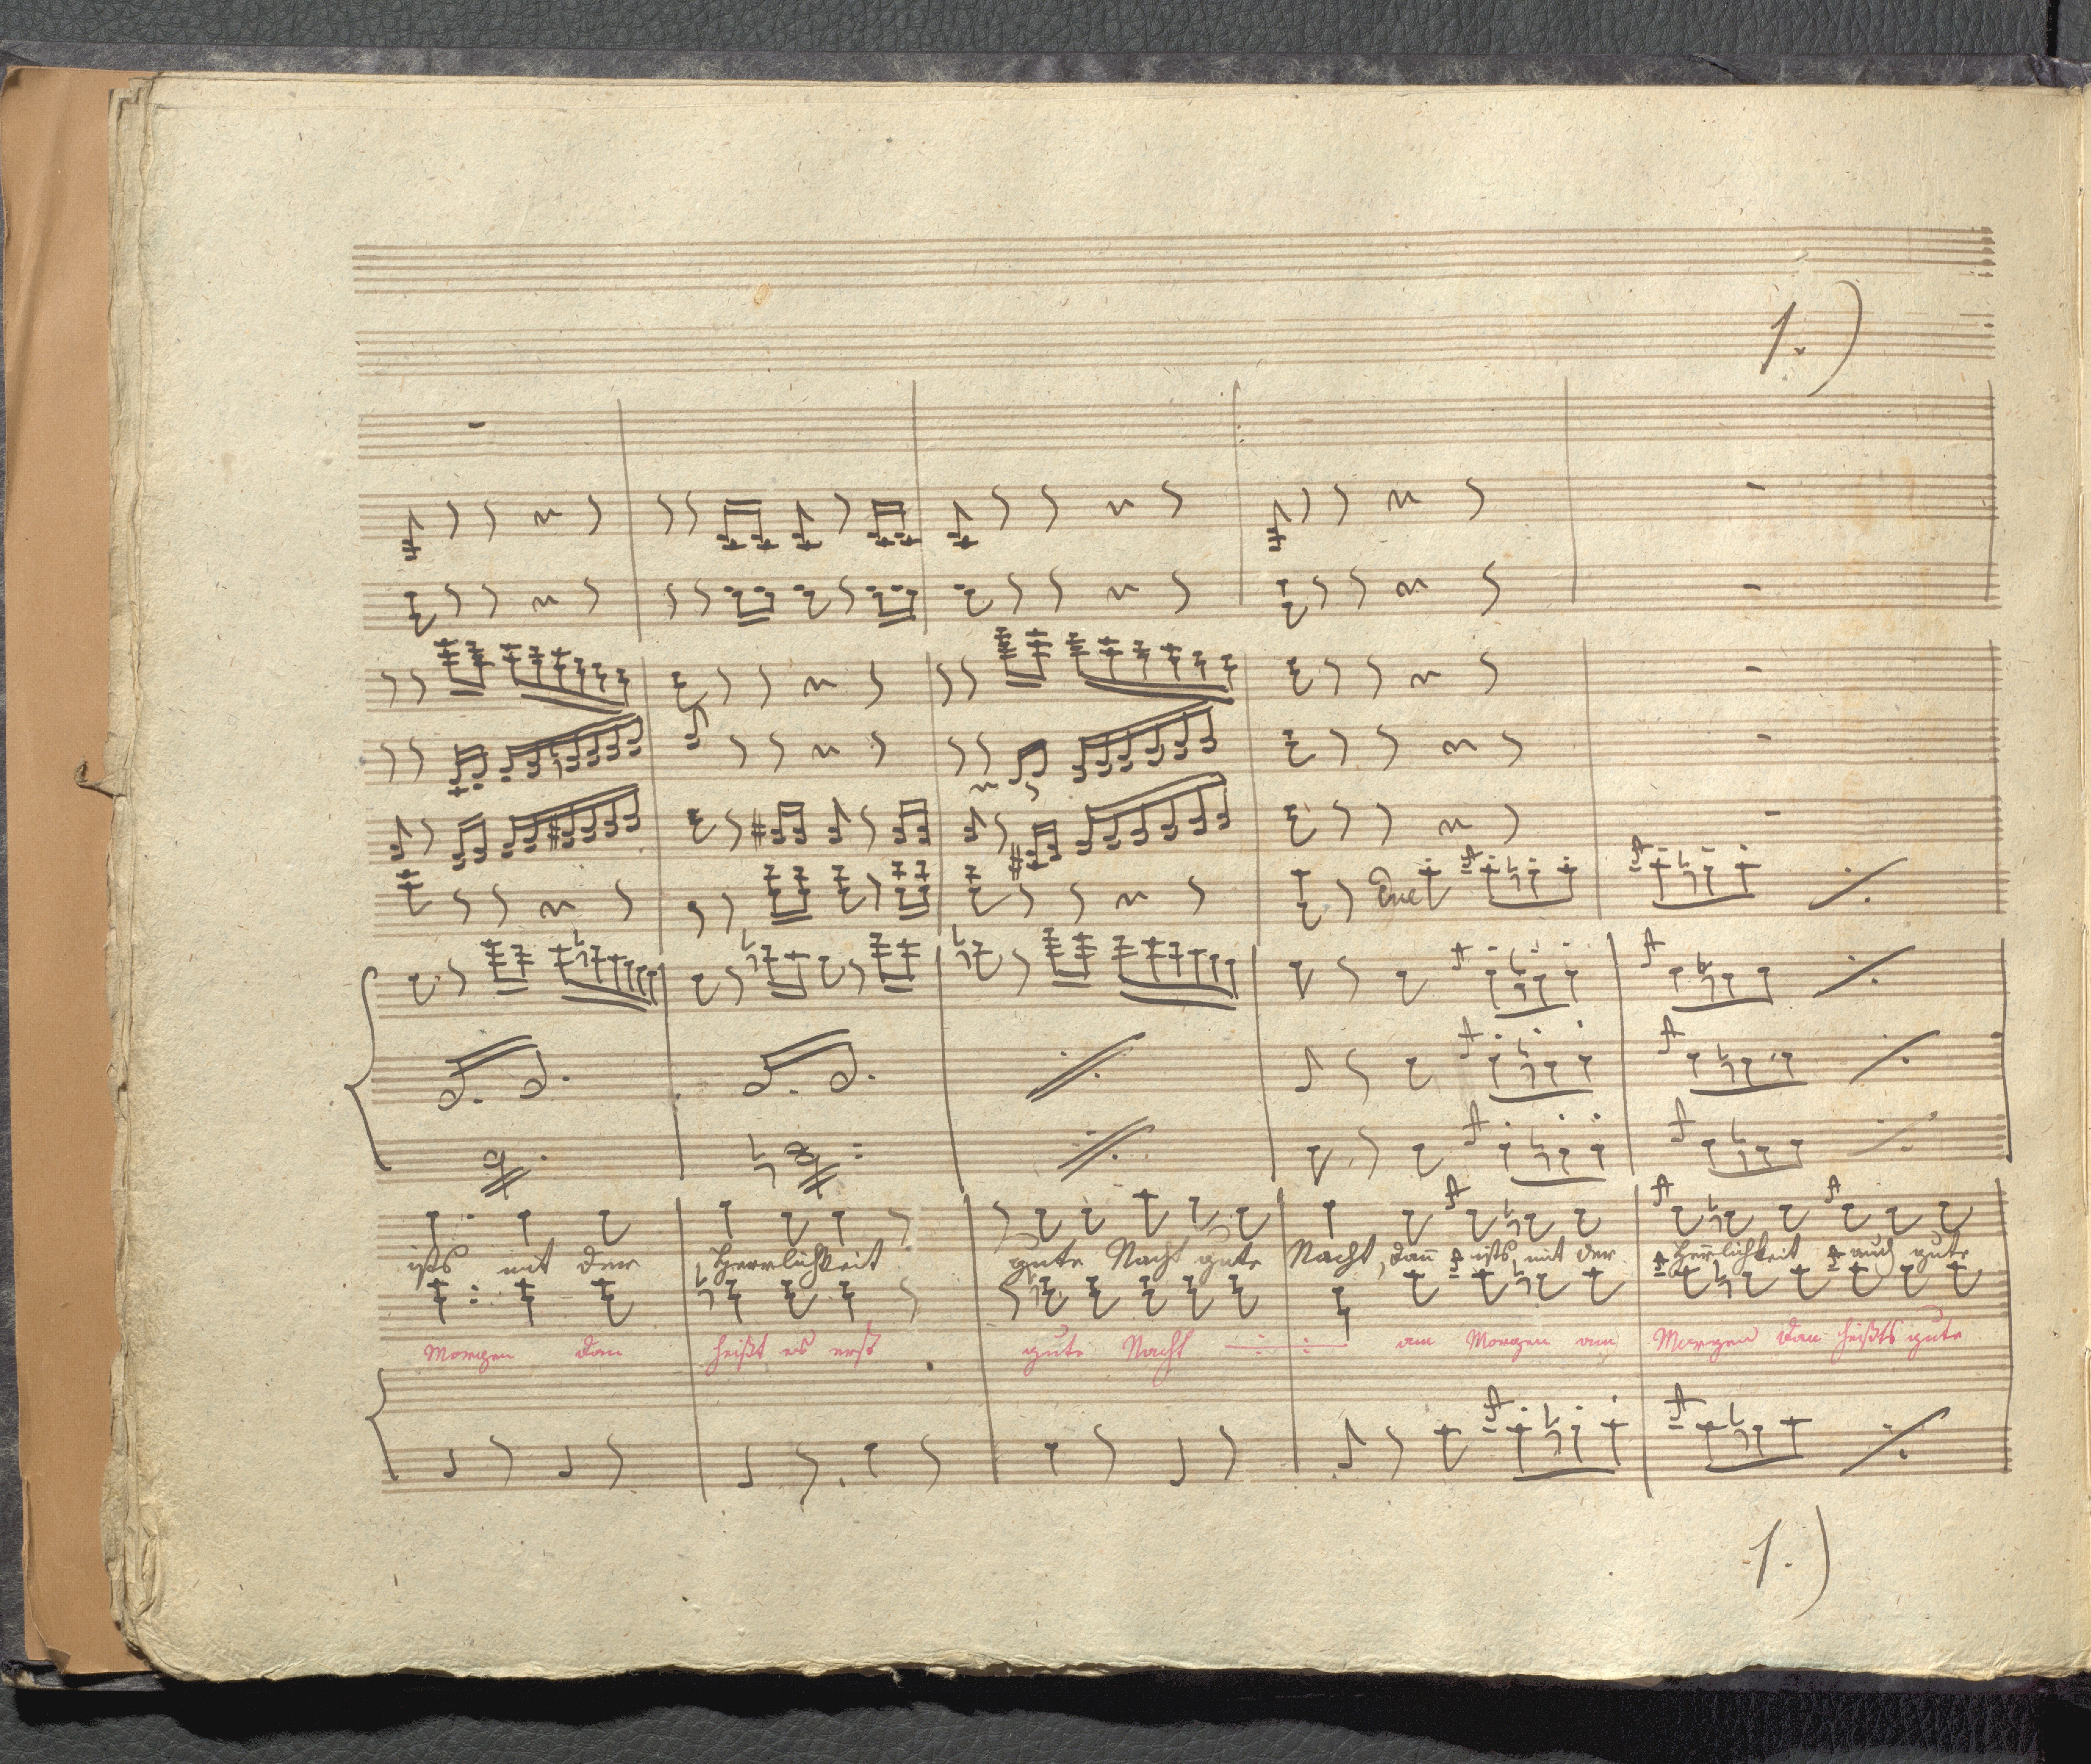 1.)
ists mit der Herrlichkeit gute Nacht gute Nacht, dañ ists mit der Herrlichkeit auch gute
Morgen dan heißt es erst gute Nacht —:—:— am Morgen am Morgen dan heißts gute
1.)